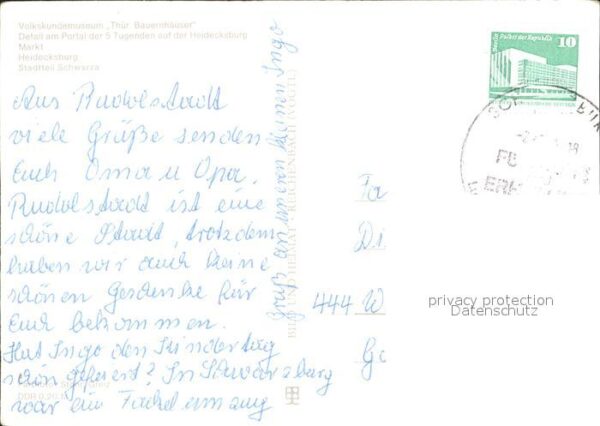 Volkskundemuseum „Thür. Bauernhäuser"
Detail am Portal der 5 Tugenden auf der Heidecksburg
Markt
Heidecksburg
Stadtteil Schwarza
Aus Rudolstadt
viele Grüße senden
Euch Oma u Opa.
Rudolstadt ist eine
schöne Stadt, trotzdem
haben wir auch keine
schönen Geschenke für
Euch bekommen.
Hat Ingo den Kindertag
schön gefeiert? In Schwarzburg
war ein Fackelumzug
Gruß an unseren kleinen Ingo
Palast der Republik
10
Fa
Di
444 W
Ge
privacy protection
Datenschutz